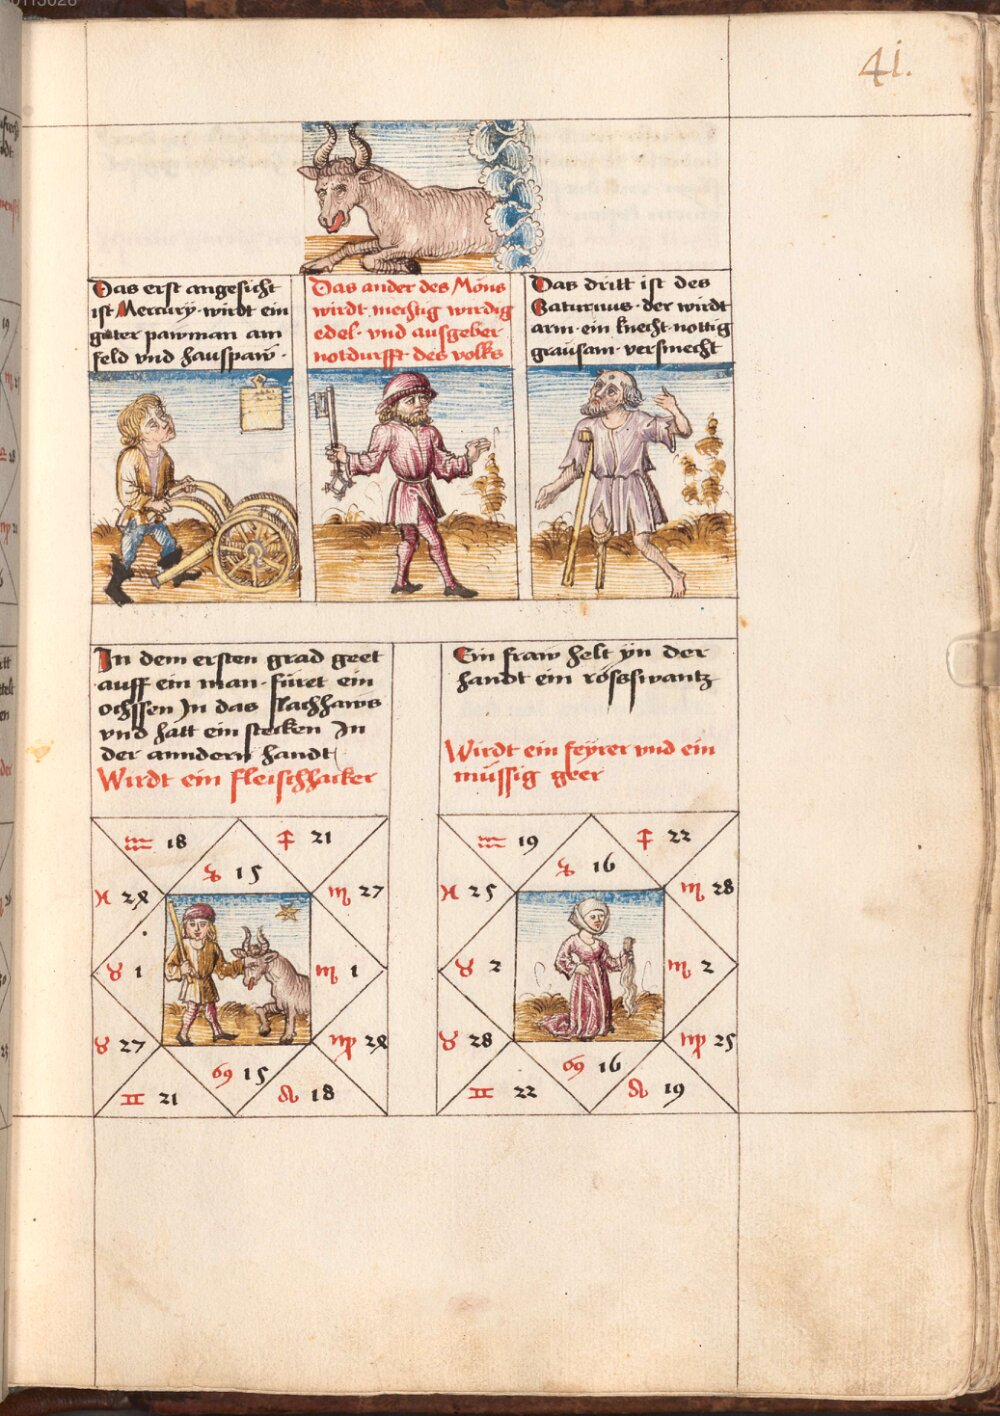 41.
Das erst angesicht
ist Mercurÿ · wirdt ein
guter pawman am
feld vnd hauspaw ·
Das ander des Mons
wirdt mechtig wirdig
edel · vnd ausgeber
notdurfft · des volks
Das dritt ist des
Saturnus · der wirdt
arm · ein knecht nottig
grausam · versmecht
In dem ersten grad geet
auff ein man · füret ein
ochssen In das slachhaws
vnd halt ein stecken In
der anndern handt
Wirdt ein fleischhacker
Ein fraw helt ÿn der
handt ein rössswantz
Wirdt ein feÿrer vnd ein
müssig geer
♒ 18
♐ 21
♑ 15
♓ 24
♏ 27
♉ 1
♏ 1
♉ 27
♍ 24
♋ 15
♊ 21
♌ 18
♒ 19
♐ 22
♑ 16
♓ 25
♏ 28
♉ 2
♏ 2
♉ 28
♍ 25
♋ 16
♊ 22
♌ 19